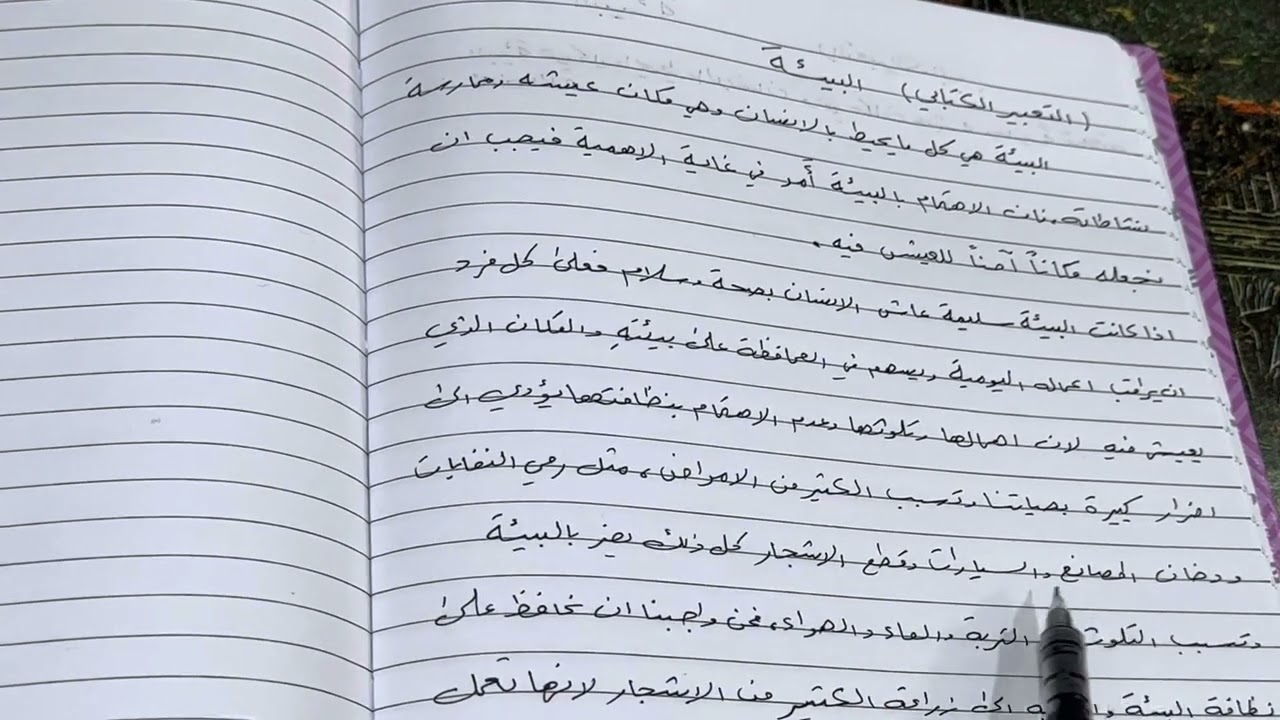 (التعبير الكتابي) البيئة
البيئة هي كل ما يحيط بالانسان وهي مكان عيشه وممارسة
نشاطاته الاهتمام بالبيئة أمر في غاية الاهمية فيجب ان
نجعله مكاناً آمناً للعيش فيه.
اذا كانت البيئة سليمة عاش الانسان بصحة وسلام فعلى كل فرد
ان يراقب اعماله اليومية ويسهم في المحافظة على بيئتهِ والمكان الذي
يعيش فيه لان اهمالها وتلوثها وعدم الاهتمام بنظافتها يؤدي الى
اضرار كبيرة بحياتنا وتسبب الكثير من الامراض، مثل رمي النفايات
ودخان المصانع والسيارات وقطع الاشجار كل ذلك يضر بالبيئة
وتسبب التلوث التربة والماء والهواء، فمن واجبنا ان نحافظ على
نظافة البيئة الى زراعة الكثير من الاشجار لانها تعمل